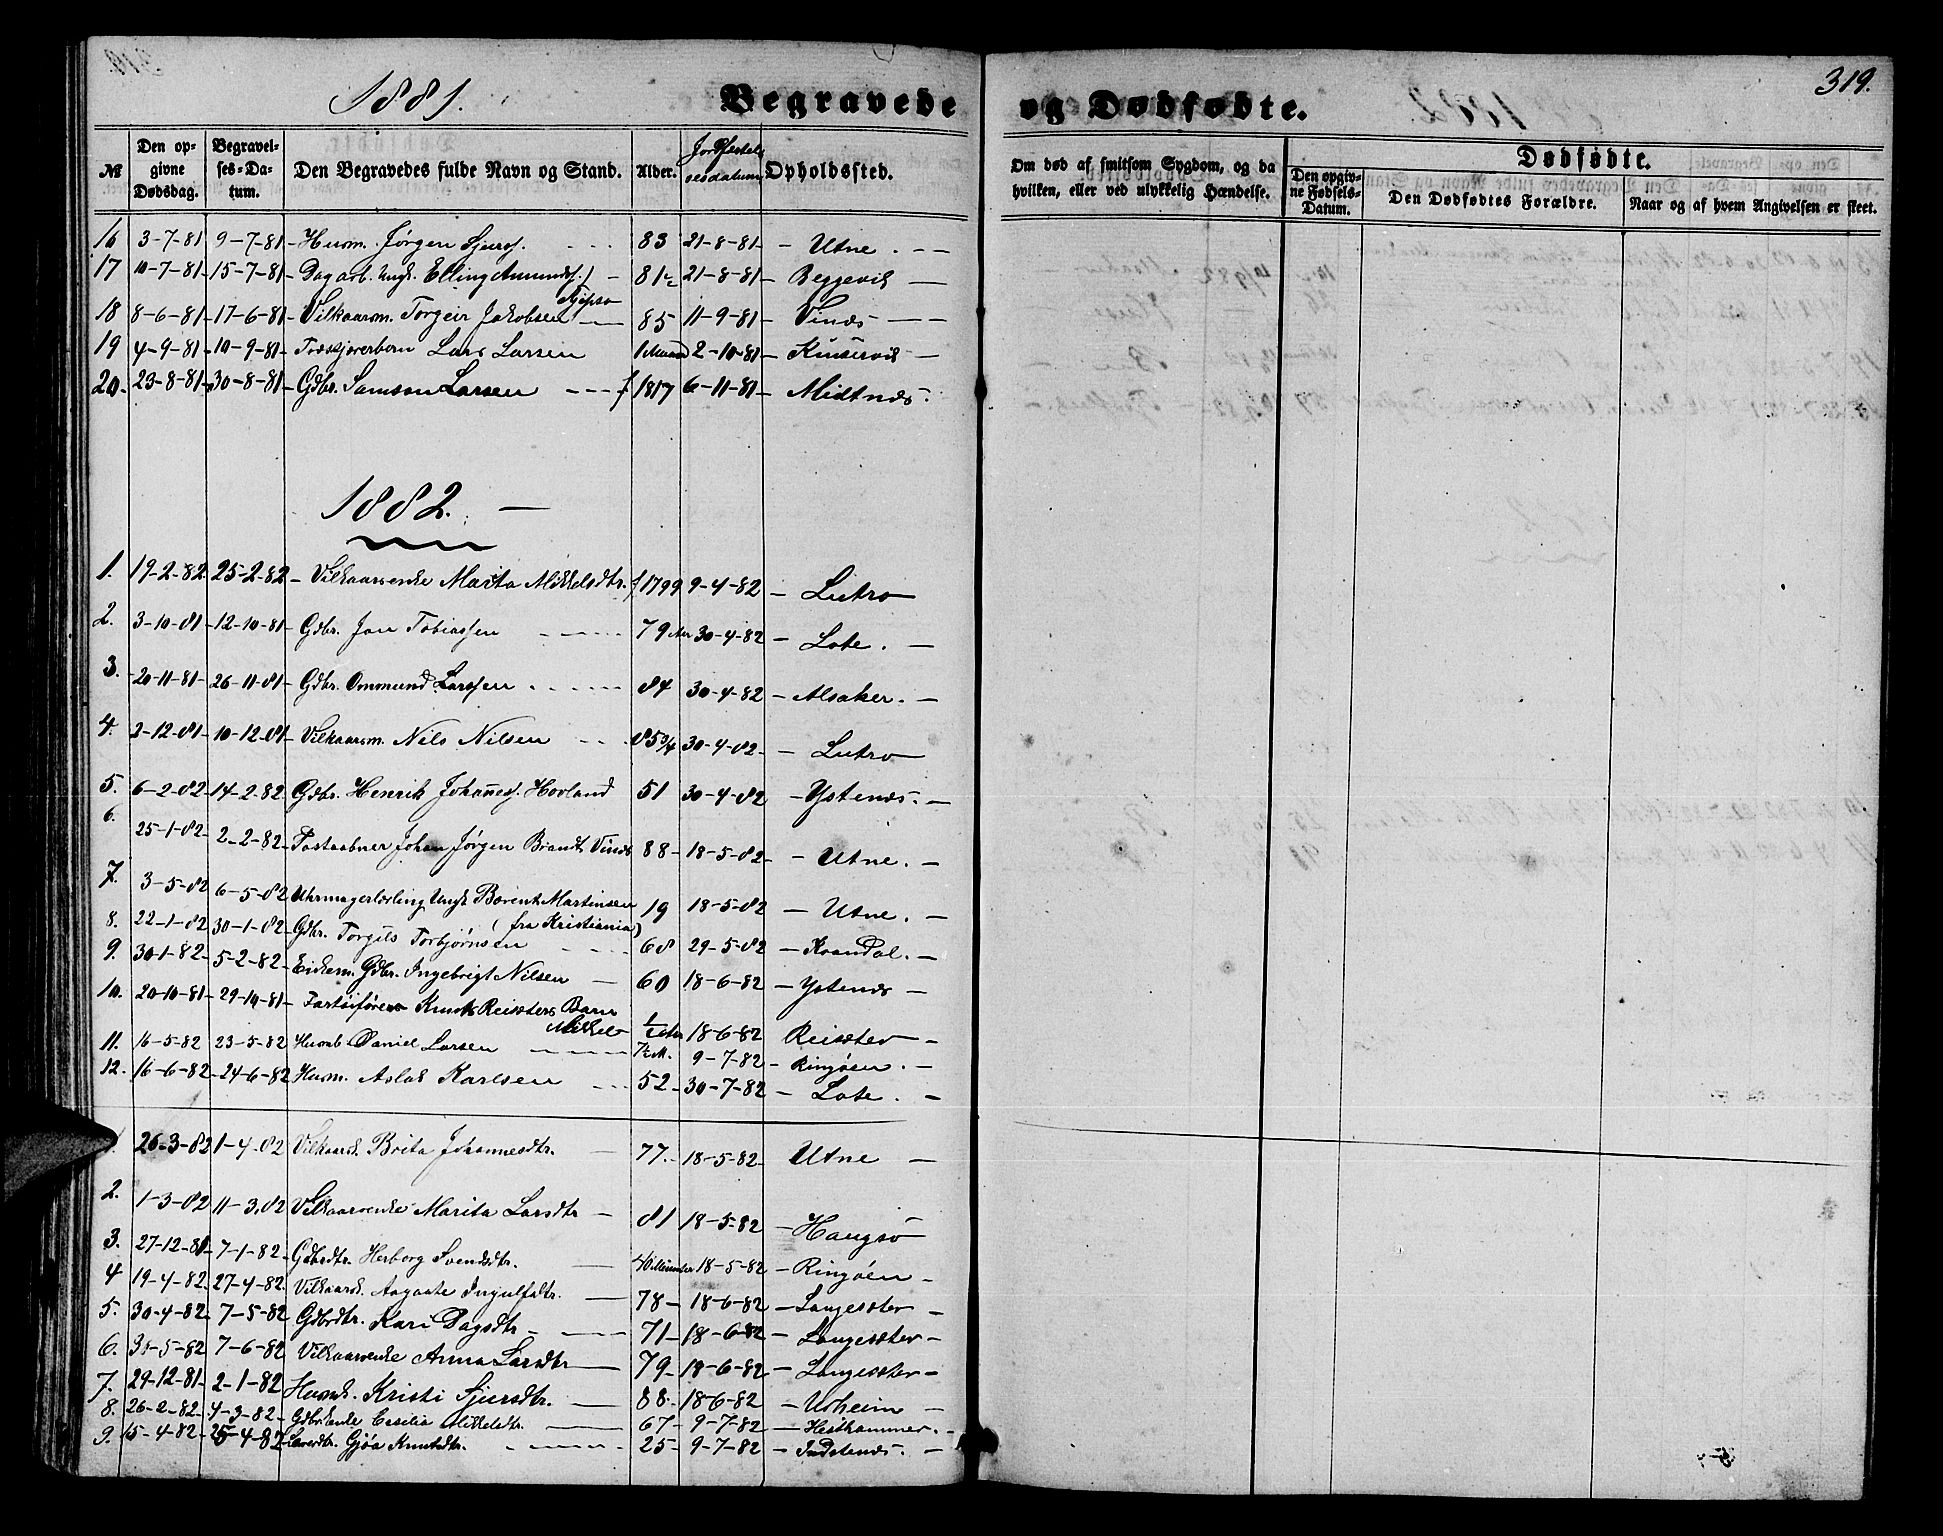 1881.
Begravede og Dødfødte.
319.
№ Den opgivne Dødsdag. Begravelses-Datum. Den Begravedes fulde Navn og Stand. Alder. Jordfæstelsesdatum Opholdssted. Om død af smitsom Sygdom, og da hvilken, eller ved ulykkelig Hændelse. Dødfødte. Den opgivne Fødsels-Datum. Den Dødfødtes Forældre. Naar og af hvem Angivelsen er skeet.
16 3-7-81 9-7-81 Husm. Jørgen Sjurs. 83 21-8-81 Utne.
17 10-7-81 15-7-81 Dagarb. Ungk. Elling Amunds. 81 21-8-81 Beggevik
18 8-6-81 17-6-81 Vilkaarsm. Torgeir Jakobsen 85 11-9-81 Vinæs
19 4-9-81 10-9-81 Lars Larsen 1 Maaned 2-10-81 Kinservik
20. 23-8-81 30-8-81 Gdbr. Samson Larsen f 1817 6-11-81 Midtnæs.
1882.
1. 19-2-82 25-2-82 Vilkaarsenke Marita Mikkelsdtr. f 1799 9-4-82 Lutro
2. 3-10-81 12-10-81 Gdbr. Jon Tobiassen 79 Aar 30-4-82 Lote.
3. 20-11-81 26-11-81 Gdbr. Ommund Larssen 84 30-4-82 Alsaker.
4. 2-12-81 10-12-81 Vilkaarsm. Nils Nilsen 85¾ 30-4-82 Lutro
5. 6-2-82 14-2-82 Gdbr. Henrik Johannes. Hovland 51 30-4-82 Ystenæs.
6. 25-1-82 2-2-82 Postaabner Johan Jørgen Brandt Vinæs 88 18-5-82 Utne.
7. 3-5-82 6-5-82 Uhrmagerlærling Ungk. Børent Martinsen 19 18-5-82 Utne.
(fra Kristiania)
8. 22-1-82 30-1-82 Gdbr. Torgils Torbjørnsen 68 29-5-82 Kvandal.
9. 30-1-82 5-2-82 Enkem. Gdbr. Ingebrigt Nilsen 60 18-6-82 Ystenæs
10. 20-10-81 29-10-81 Fartøifører Knut Reisæters Barn
Mikkel 18-6-82 Reisæter
11. 16-5-82 23-5-82 Husmb. Daniel Larsen 9-7-82 Ringøen.
12. 16-6-82 24-6-82 Husm. Aslak Karlsen 52 30-7-82 Lote.
1. 26-3-82 1-4-82 Vilkaarsk. Brita Johannesdtr. 77. 18-5-82 Utne
2. 1-3-82 11-3-82 Vilkaarsenke Marita Larsdtr 81 18-5-82 Haugsø
3. 27-12-81 7-1-82 Gdbrdtr. Herborg Svendsdtr. 18-5-82 Ringøen
4 19-4-82 27-4-82 Vilkaarsk. Aagaate Ingulfsdtr. 78 18-6-82 Langesæter
5. 30-4-82 7-5-82 Gdbrdtr. Kari Dagsdtr 71 18-6-82 Langesæter
6. 31-5-82 7-6-82 Vilkaarsenke Anna Larsdtr 79 18-6-82 Langesæter
7. 29-12-81 2-1-82 Husmk. Kristi Sjursdtr. 88. 18-6-82 Urheim
8. 26-2-82 4-3-82 Gdbrenke Cecilia Mikkelsdtr. 67 9-7-82 Hesthammer.
9. 15-4-82 25-4-82 Gjøa Knutsdtr. 25 9-7-82 Indstenæs.